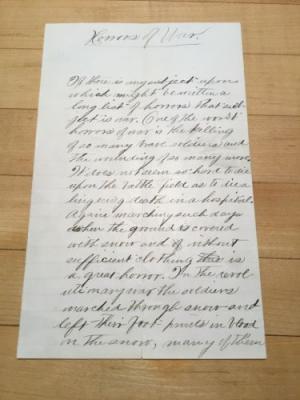 Horrors of War.
If there is any subject upon
which might be written a
long list of horrors that sub-
ject is war. One of the worst
horrors of war is the killing
of so many brave soldiers and
the wounding of so many more.
It does not seem so hard to die
upon the battle field as to die a
lingering death in a hospital.
Again marching such days
when the ground is covered
with snow and if without
sufficient clothing this is
a great horror. In the revol-
utionary war the soldiers
marched through snow and
left their foot prints in blood
on the snow, many of them